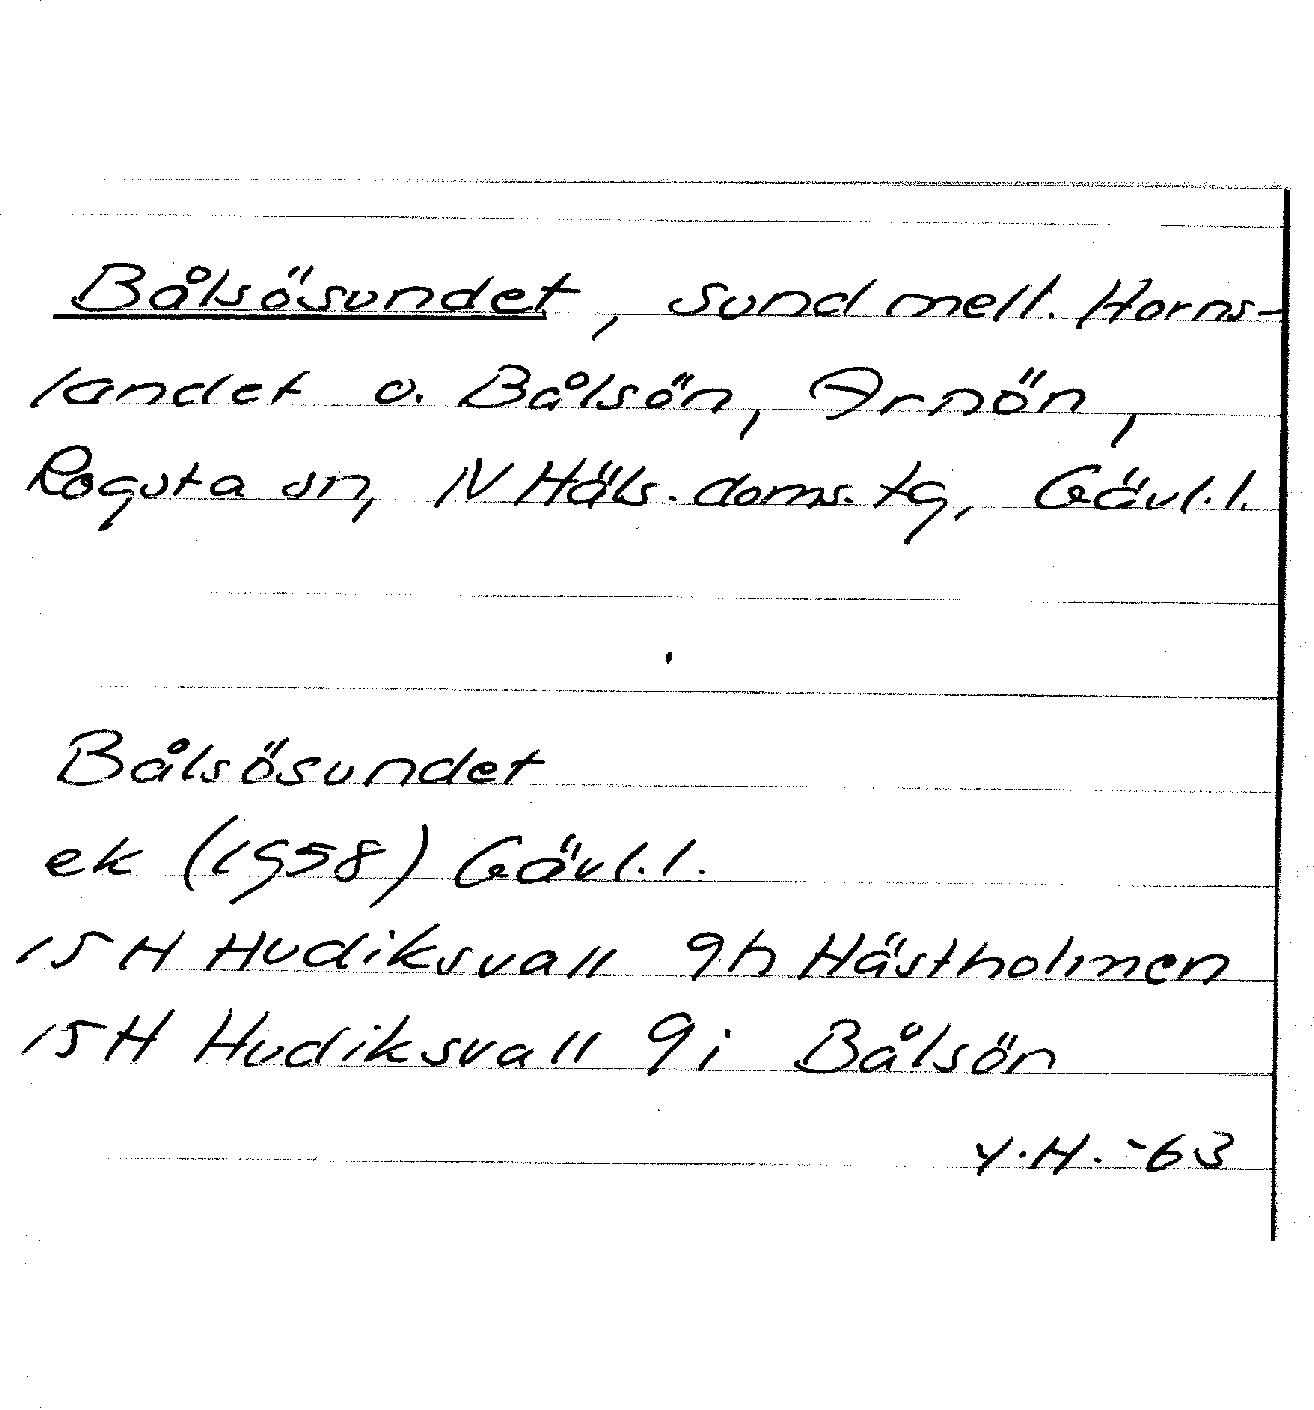 Bålsösundet, sund mell. Horns-
landet o. Bålsön, Arnön,
Rogsta sn, N Häls. doms. tg, Gävl.l.
Bålsösundet
ek (1958) Gävl.l.
15H Hudiksvall 9h Hästholmen
15H Hudiksvall 9i Bålsön
Y.H. -63